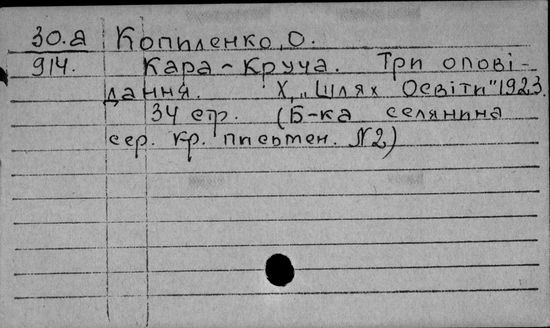 30.а Копиленко, О.
914. Кара-Круча. Три опові-
дання. Х, „Шлях Освіти" 1923.
34 стр. (Б-ка селянина
сер. кр. письмен. №2)